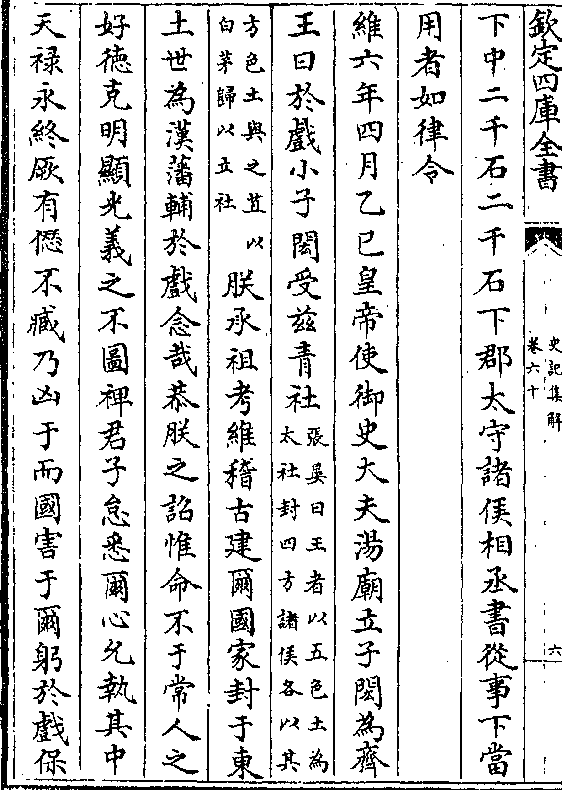 欽定四庫全書
史記集解
卷六十
六
下中二千石二千石下郡太守諸侯相丞書從事下當
用者如律令
維六年四月乙巳皇帝使御史大夫湯廟立子閎為齊
王曰於戲小子閎受兹青社
張晏曰王者以五色土為
太社封四方諸侯各以其
方色土與之苴以
白茅歸以立社
朕承祖考維稽古建爾國家封于東
土世為漢藩輔於戲念哉恭朕之詔惟命不于常人之
好徳克明顯光義之不圖禆君子怠悉爾心允執其中
天禄永終厥有僁不臧乃凶于而國害于爾躬於戲保